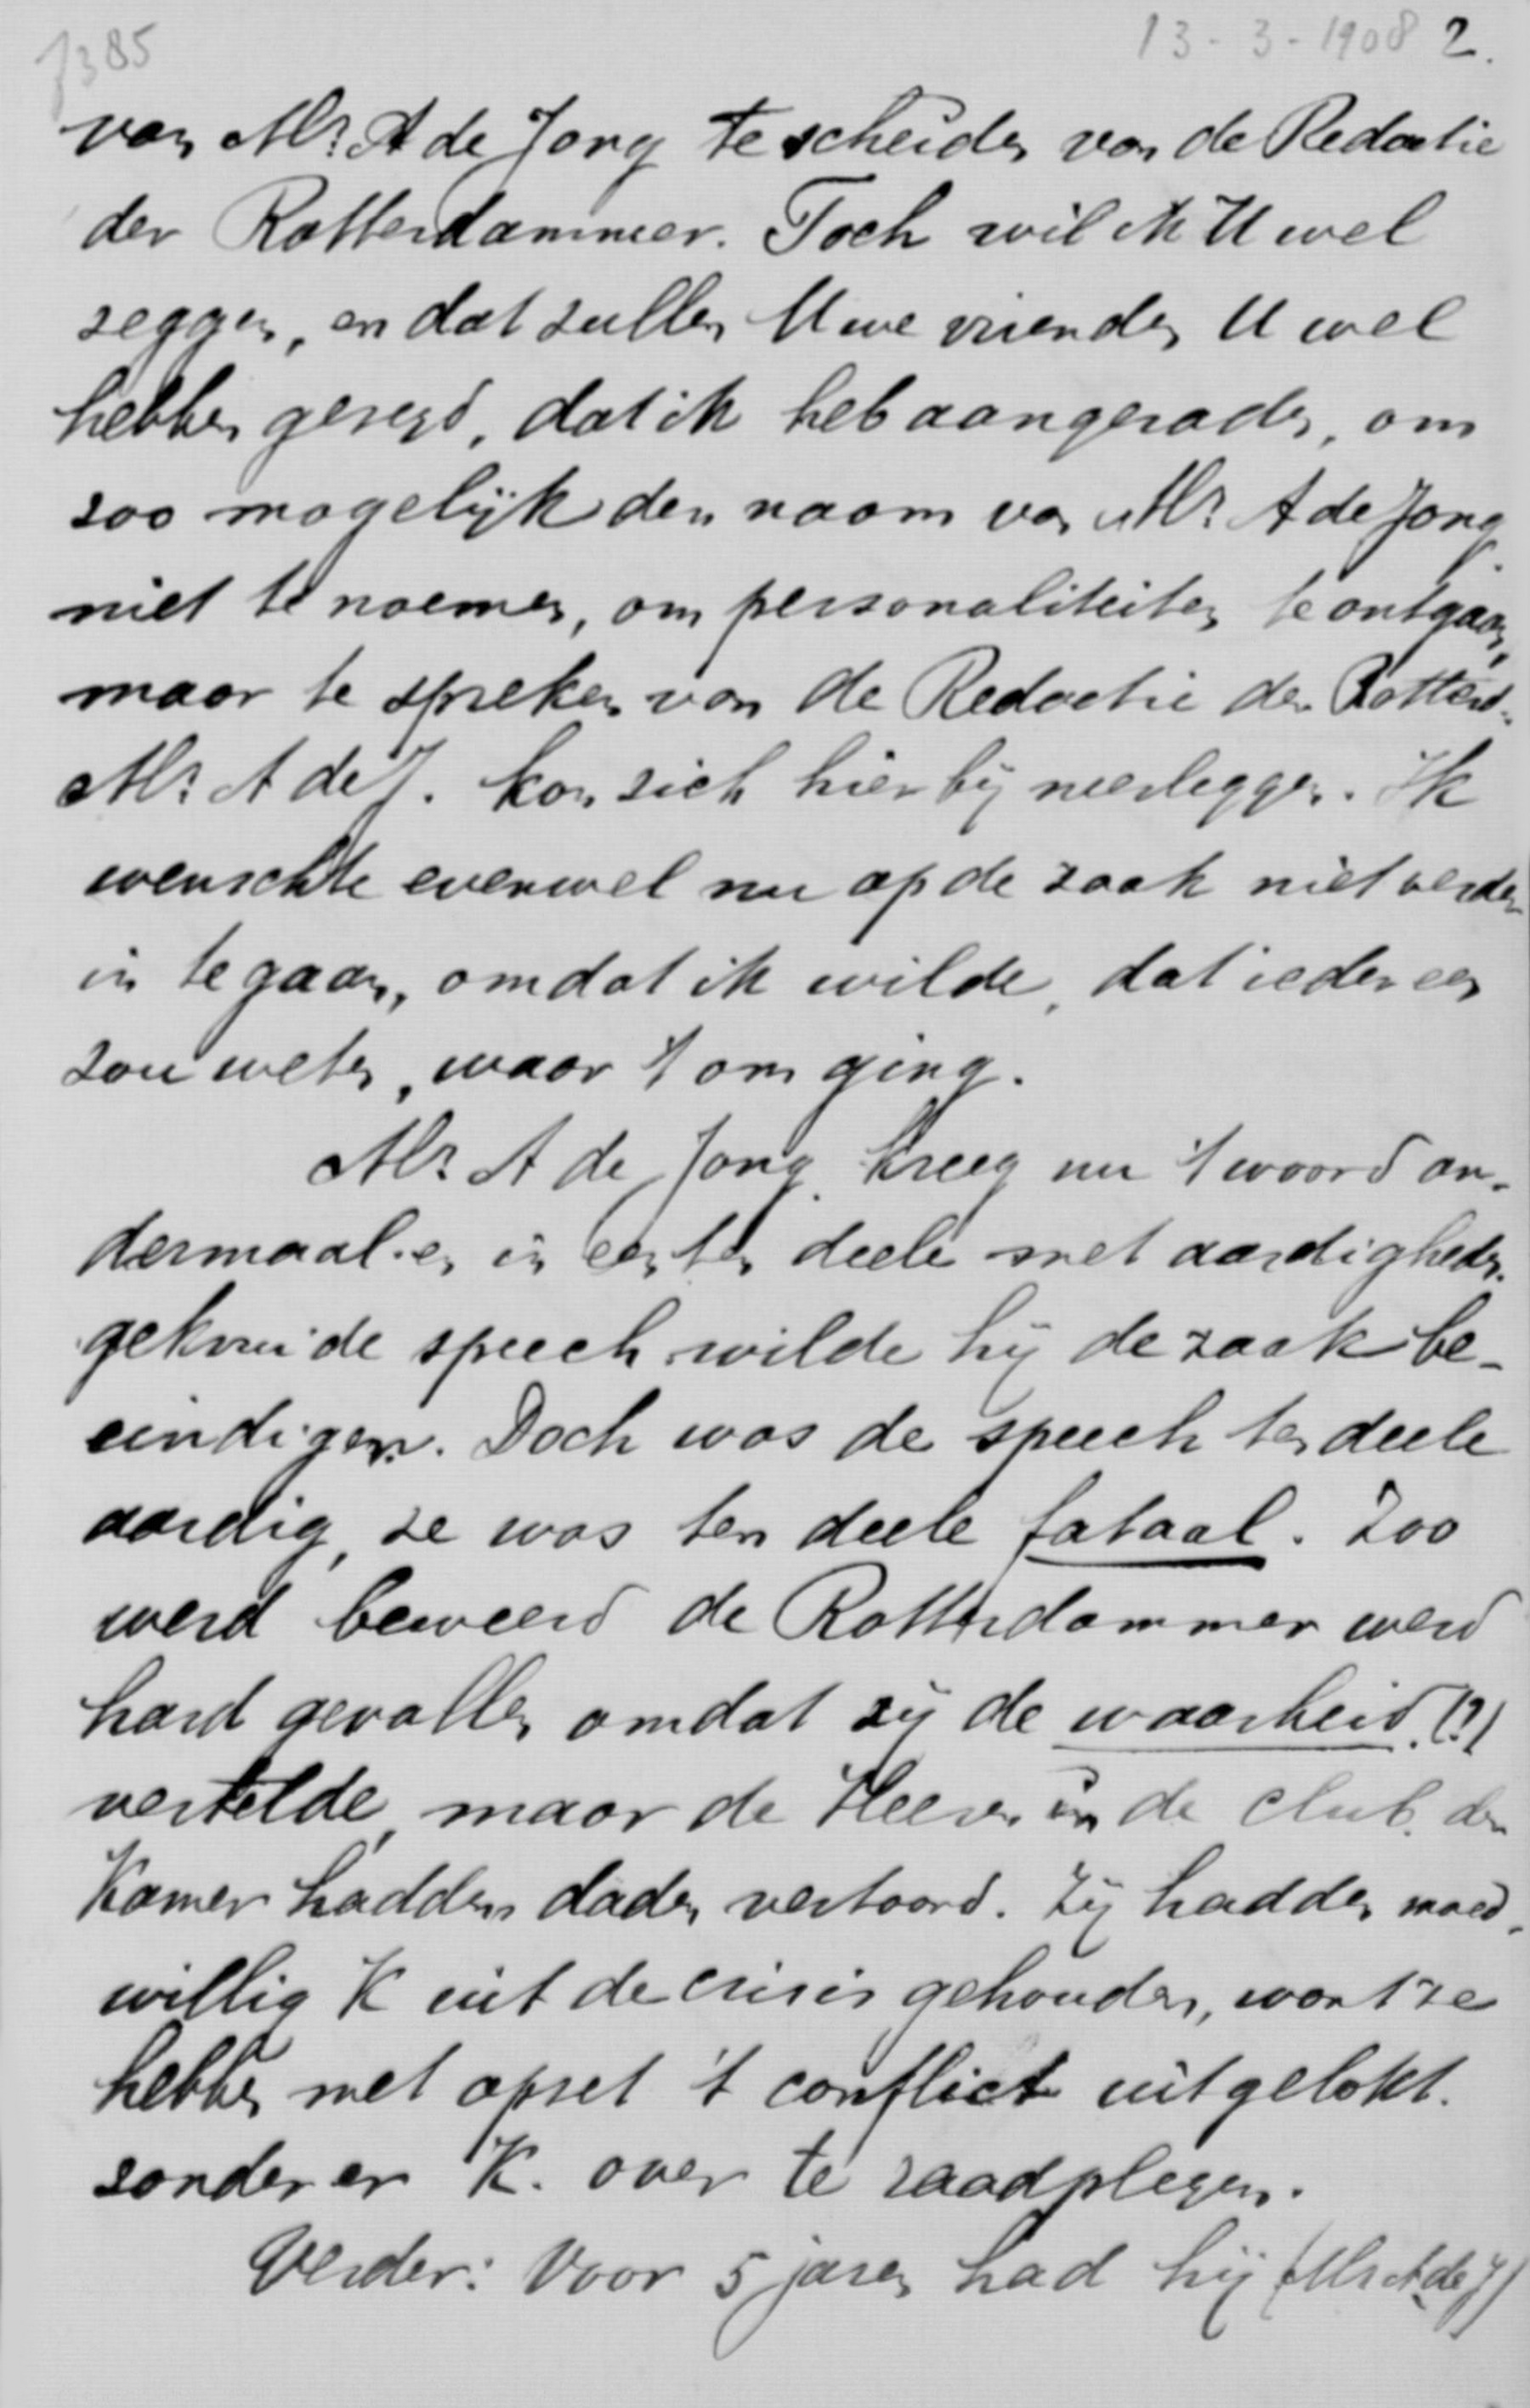 7385
13-3-1908 2.
van Mr. A de Jong te scheiden van de Redactie
der Rotterdammer. Toch wil ik U wel
zeggen, en dat zullen Uwe vrienden U wel
hebben gezegd, dat ik heb aangeraden, om
zoo mogelijk den naam van Mr. A de Jong
niet te noemen, om personaliteiten te ontgaan,
maar te spreken van de Redactie der Rotterd.
Mr. A de J. kon zich hierbij neerleggen. Ik
wenschte evenwel nu op de zaak niet verder
in te gaan, omdat ik wilde, dat iedereen
zou weten, waar 't om ging.
Mr. A de Jong kreeg nu 't woord an-
dermaal en in een ten deele met aardigheden
gekruide speech wilde hij de zaak be-
eindigen. Doch was de speech ten deele
aardig, ze was ten deele fataal. Zoo
werd beweerd de Rotterdammer werd
hard gevallen omdat zij de waarheid (?)
vertelde, maar de Heeren in de club der
Kamer hadden daden vertoond. Zij hadden moed-
willig K uit de crisis gehouden, want ze
hebben met opzet 't conflict uitgelokt.
zonder er K. over te raadplegen.
Verder: Voor 5 jaren had hij (Mr A de J)